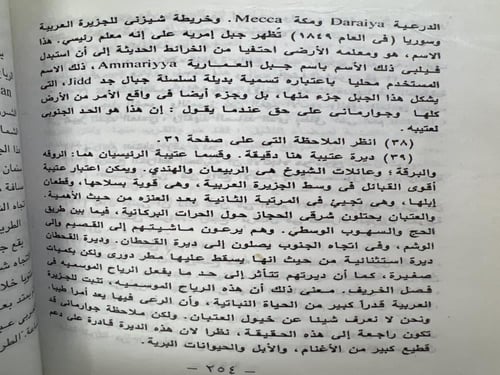 الدرعية Daraiya ومكة Mecca. وخريطة شيزنى للجزيرة العربية
وسوريا (فى العام ١٨٤٩) تظهر جبل إمريه على إنه معلم رئيسي. هذا
الاسم، هو ومعلمه الأرضى احتفيا من الخرائط الحديثة إلى أن استبدل
فيلبى ذلك الأسم باسم جبل العمارية Ammariyya، ذلك الاسم
المستخدم محليا باعتباره تسمية بديلة لسلسلة جبال جد Jidd، التى
يشكل هذا الجبل جزء منها، بل وجزء أيضا فى واقع الأمر من الأرض
كلها وجوارمانى على حق عندما يقول : إن هذا هو الحد الجنوبى
لعتيبه.
(٣٨) انظر الملاحظة التى على صفحة ٣١.
(٣٩) ديرة عتيبة هنا دقيقة. وقسما عتيبة الرئيسيان هما: الروقه
والبرقة؛ وعائلات الشيوخ هى الربيعان والهندي. ويمكن اعتبار عتيبة
أقوى القبائل فى وسط الجزيرة العربية، وهى قوية بسلاحها، وقطعان
إبلها، وهى تجيئ فى المرتبة الثانية بعد العنزه من حيث الأهمية.
والعتبان يحتلون شرقى الحجاز حول الحرات البركانية، فيما بين طريق
الحج والسهوب الوسطي. وهم يرعون ماشيتهم إلى القصيم وإلى
الوشم، وفى اتجاه الجنوب يصلون إلى ديرة القحطان. وديرة القحطان
ديرة استثنائية من حيث انها يسقط عليها مطر دورى ولكن بكميات
صغيرة، كما أن ديرتهم تتأثر إلى حد ما بفعل الرياح الموسميه فى
فصل الخريف. معنى ذلك أن هذه الرياح الموسميه، تثبت للجزيرة
العربية قدراً كبير من الحياة النباتية، وأن الرعى فيها يعد أمرا طيبا.
ونحن لا نعرف شيئا عن خيول العتبان. ولكن ملاحظة جوارمانى قد
تكون راجعة إلى هذه الحقيقة، نظرا لان هذه الديرة قادرة على دعم
قطيع كبير من الأغنام، والأبل والحيوانات البرية.
- ٢٥٤ -